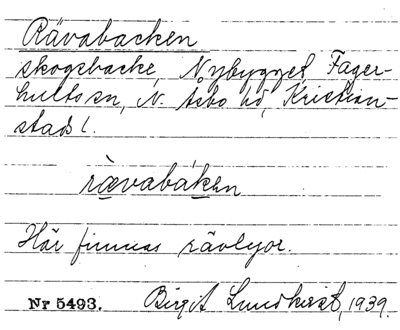 Rävabacken
skogsbacke, Nybygget, Fager-
hults sn, N. Åsbo hd, Kristian-
stads l.
rævabaken
Här finnas rävlyor.
Nr 5493. Birgit Lundkvist, 1939.